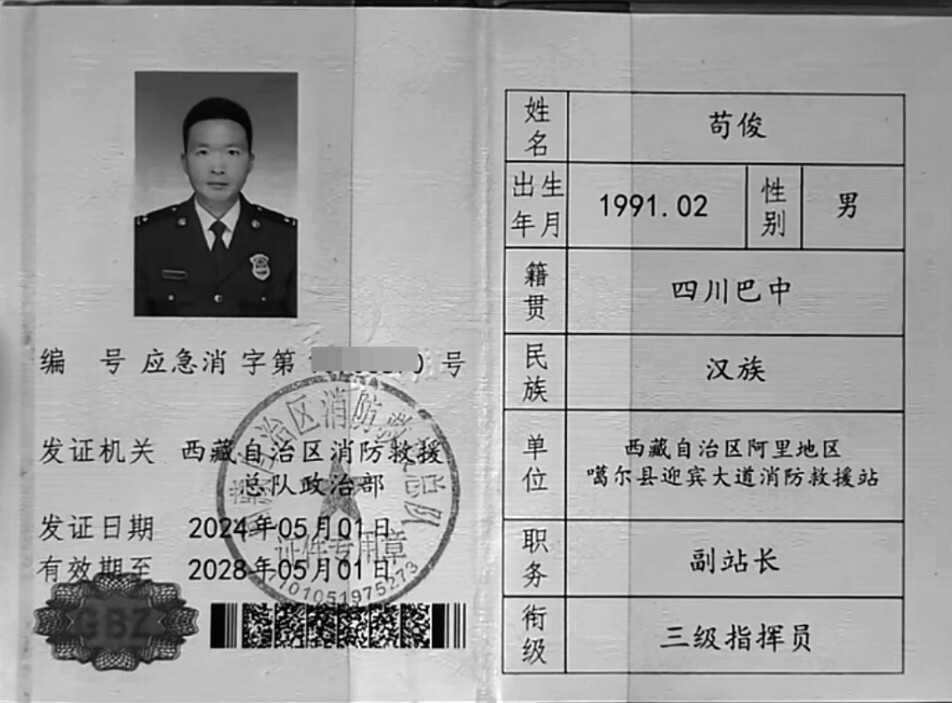 编 号 应急消 字第 号
发证机关 西藏自治区消防救援
总队政治部
发证日期 2024年05月01日
有效期至 2028年05月01日
证件专用章
GBZ
姓名 苟俊
出生年月 1991.02 性别 男
籍贯 四川巴中
民族 汉族
单位 西藏自治区阿里地区
噶尔县迎宾大道消防救援站
职务 副站长
衔级 三级指挥员